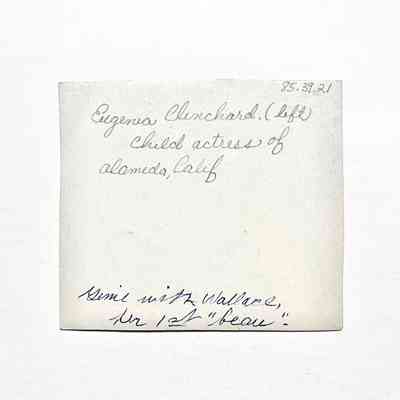 85.39.21
Eugenia Clinchard. (left)
Child actress of
Alameda, Calif
Genie with Wallace,
her 1st "beau".